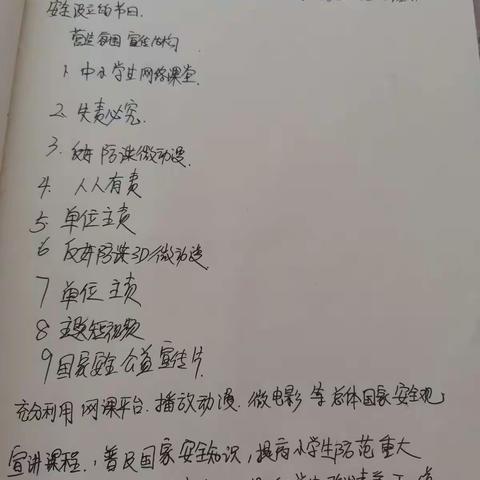 安全设立的节日.
营造氛围 宣传结构
1. 中小学生网络课堂.
2. 失责必究.
3. 反奸防谍微动漫.
4. 人人有责
5. 单位主责
6 反奸防谍3D微动漫
7 单位 主责
8 主题短视频
9 国家安全公益宣传片.
充分利用网课平台. 播放动漫. 微电影 等 总体国家安全观
宣讲课程., 普及国家安全知识, 提高小学生防范重大